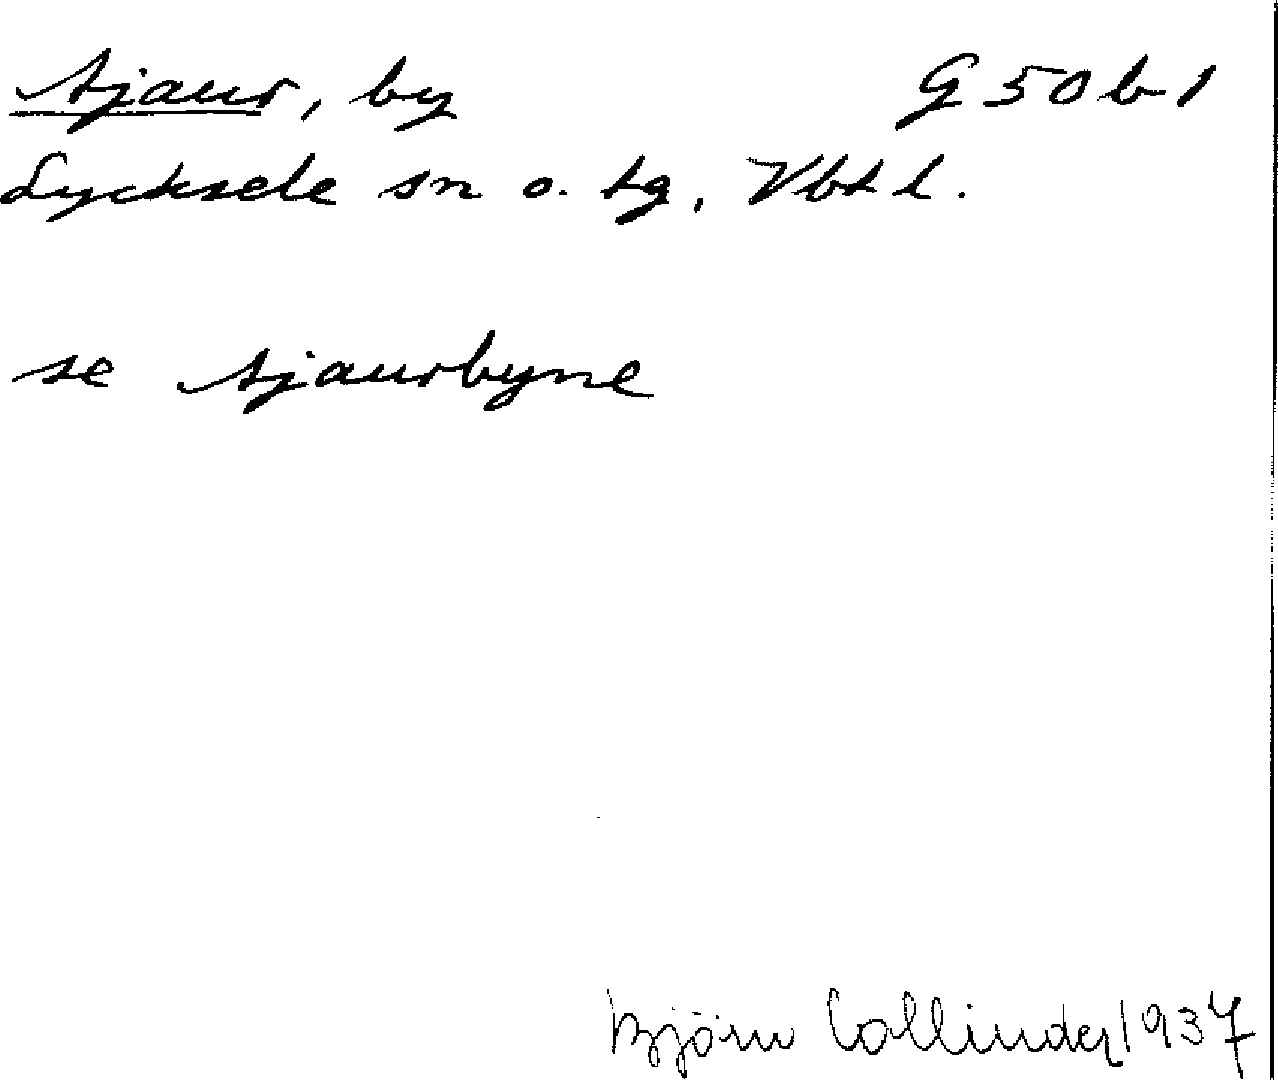 Ajaur, by G 50 b 1
Lycksele sn o. tg, Vbt l.
se Ajaurbyne
Björn Collinder 1937